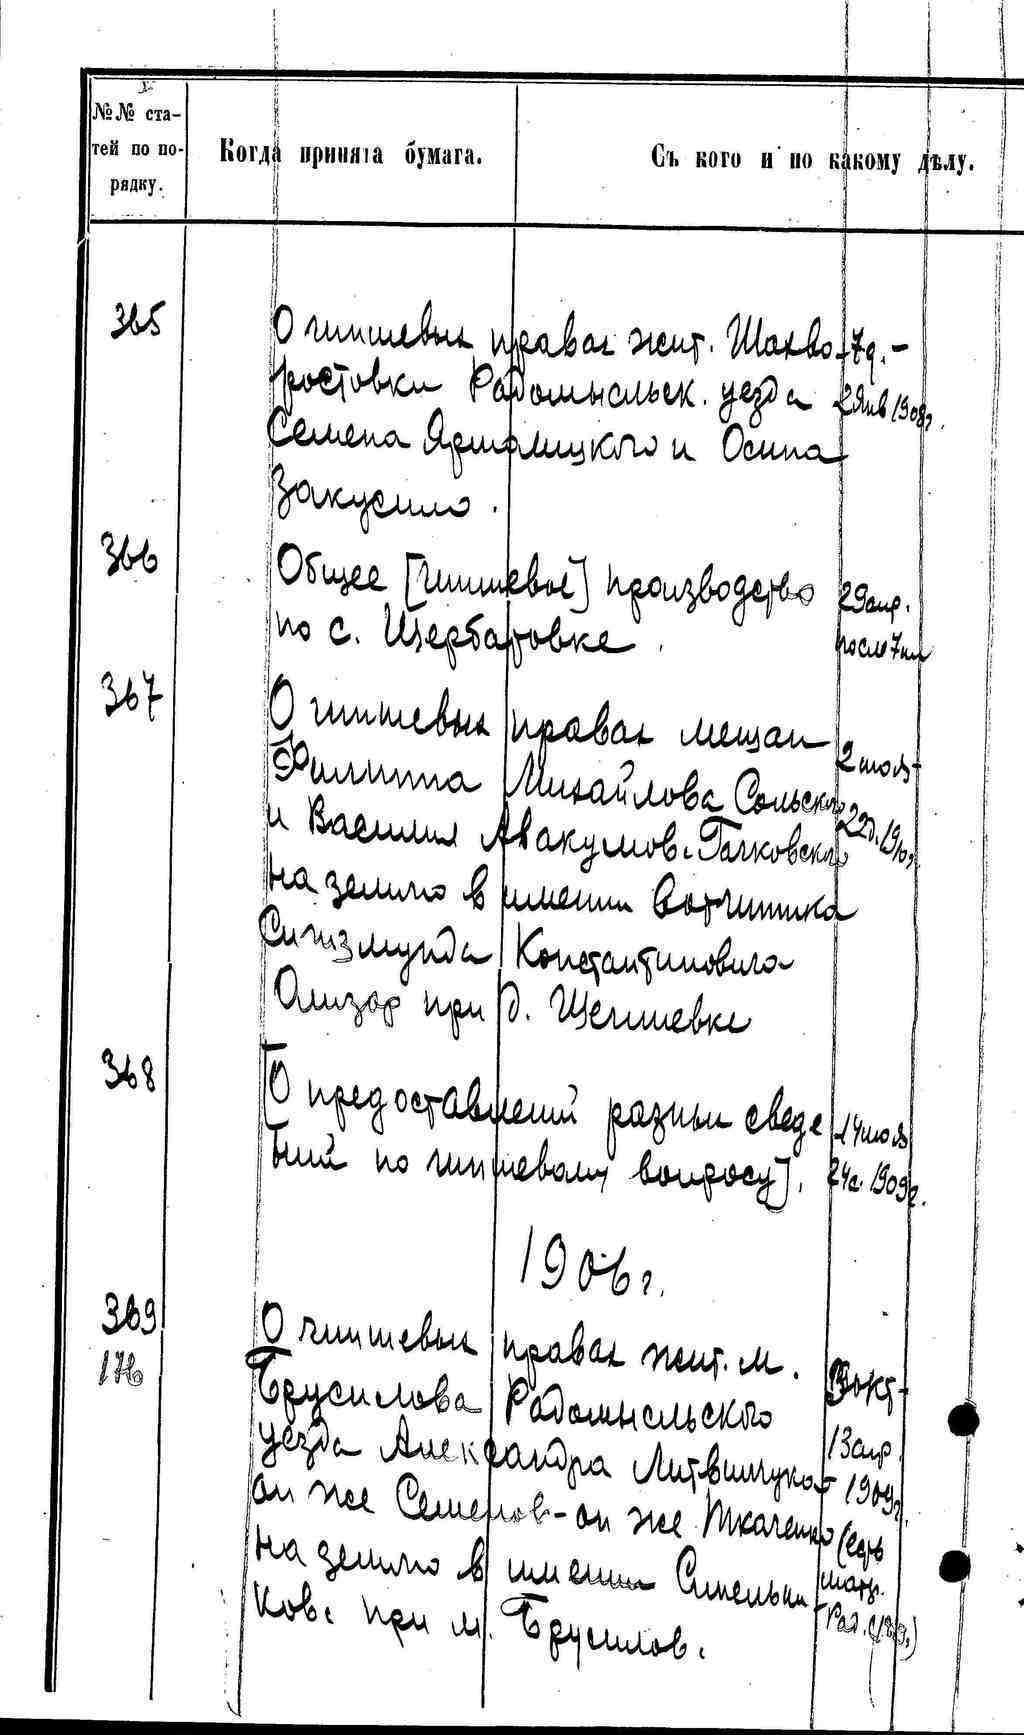 №№ ста-
тей по по-
рядку.
Когда принята бумага.
Съ кого и по какому дѣлу.
365
О чиншевых правах жит. Шахво-
ростовки Радомысльск. уезда
Семена Яржамицкого и Осипа
Закусило.
7д.-
2 Янв 1908г.
366
Общее [чиншевое] производство
по с. Щербатовке.
29 апр.
367
О чиншевых правах мещан
Филиппа Михайлова Сольского
и Василия Авакумов. Гачковского
на землю в имении вотчинника
Сигизмунда Константиновича
Олизар при д. Щегиевке
2 июля-
22д. 1910г.
368
[О предоставлений разных сведе
ний по чиншевому вопросу].
14 июля
24с. 1909г.
1906г.
369
176
О чиншевых правах жит. м.
Брусилова Радомысльского
уезда Александра Литвинчука-
он же Семенов-он же Ткаченко
на землю в имении Синельни
ков. при м. Брусилов.
окт-
13 апр.
1909г.
(есть
матер.